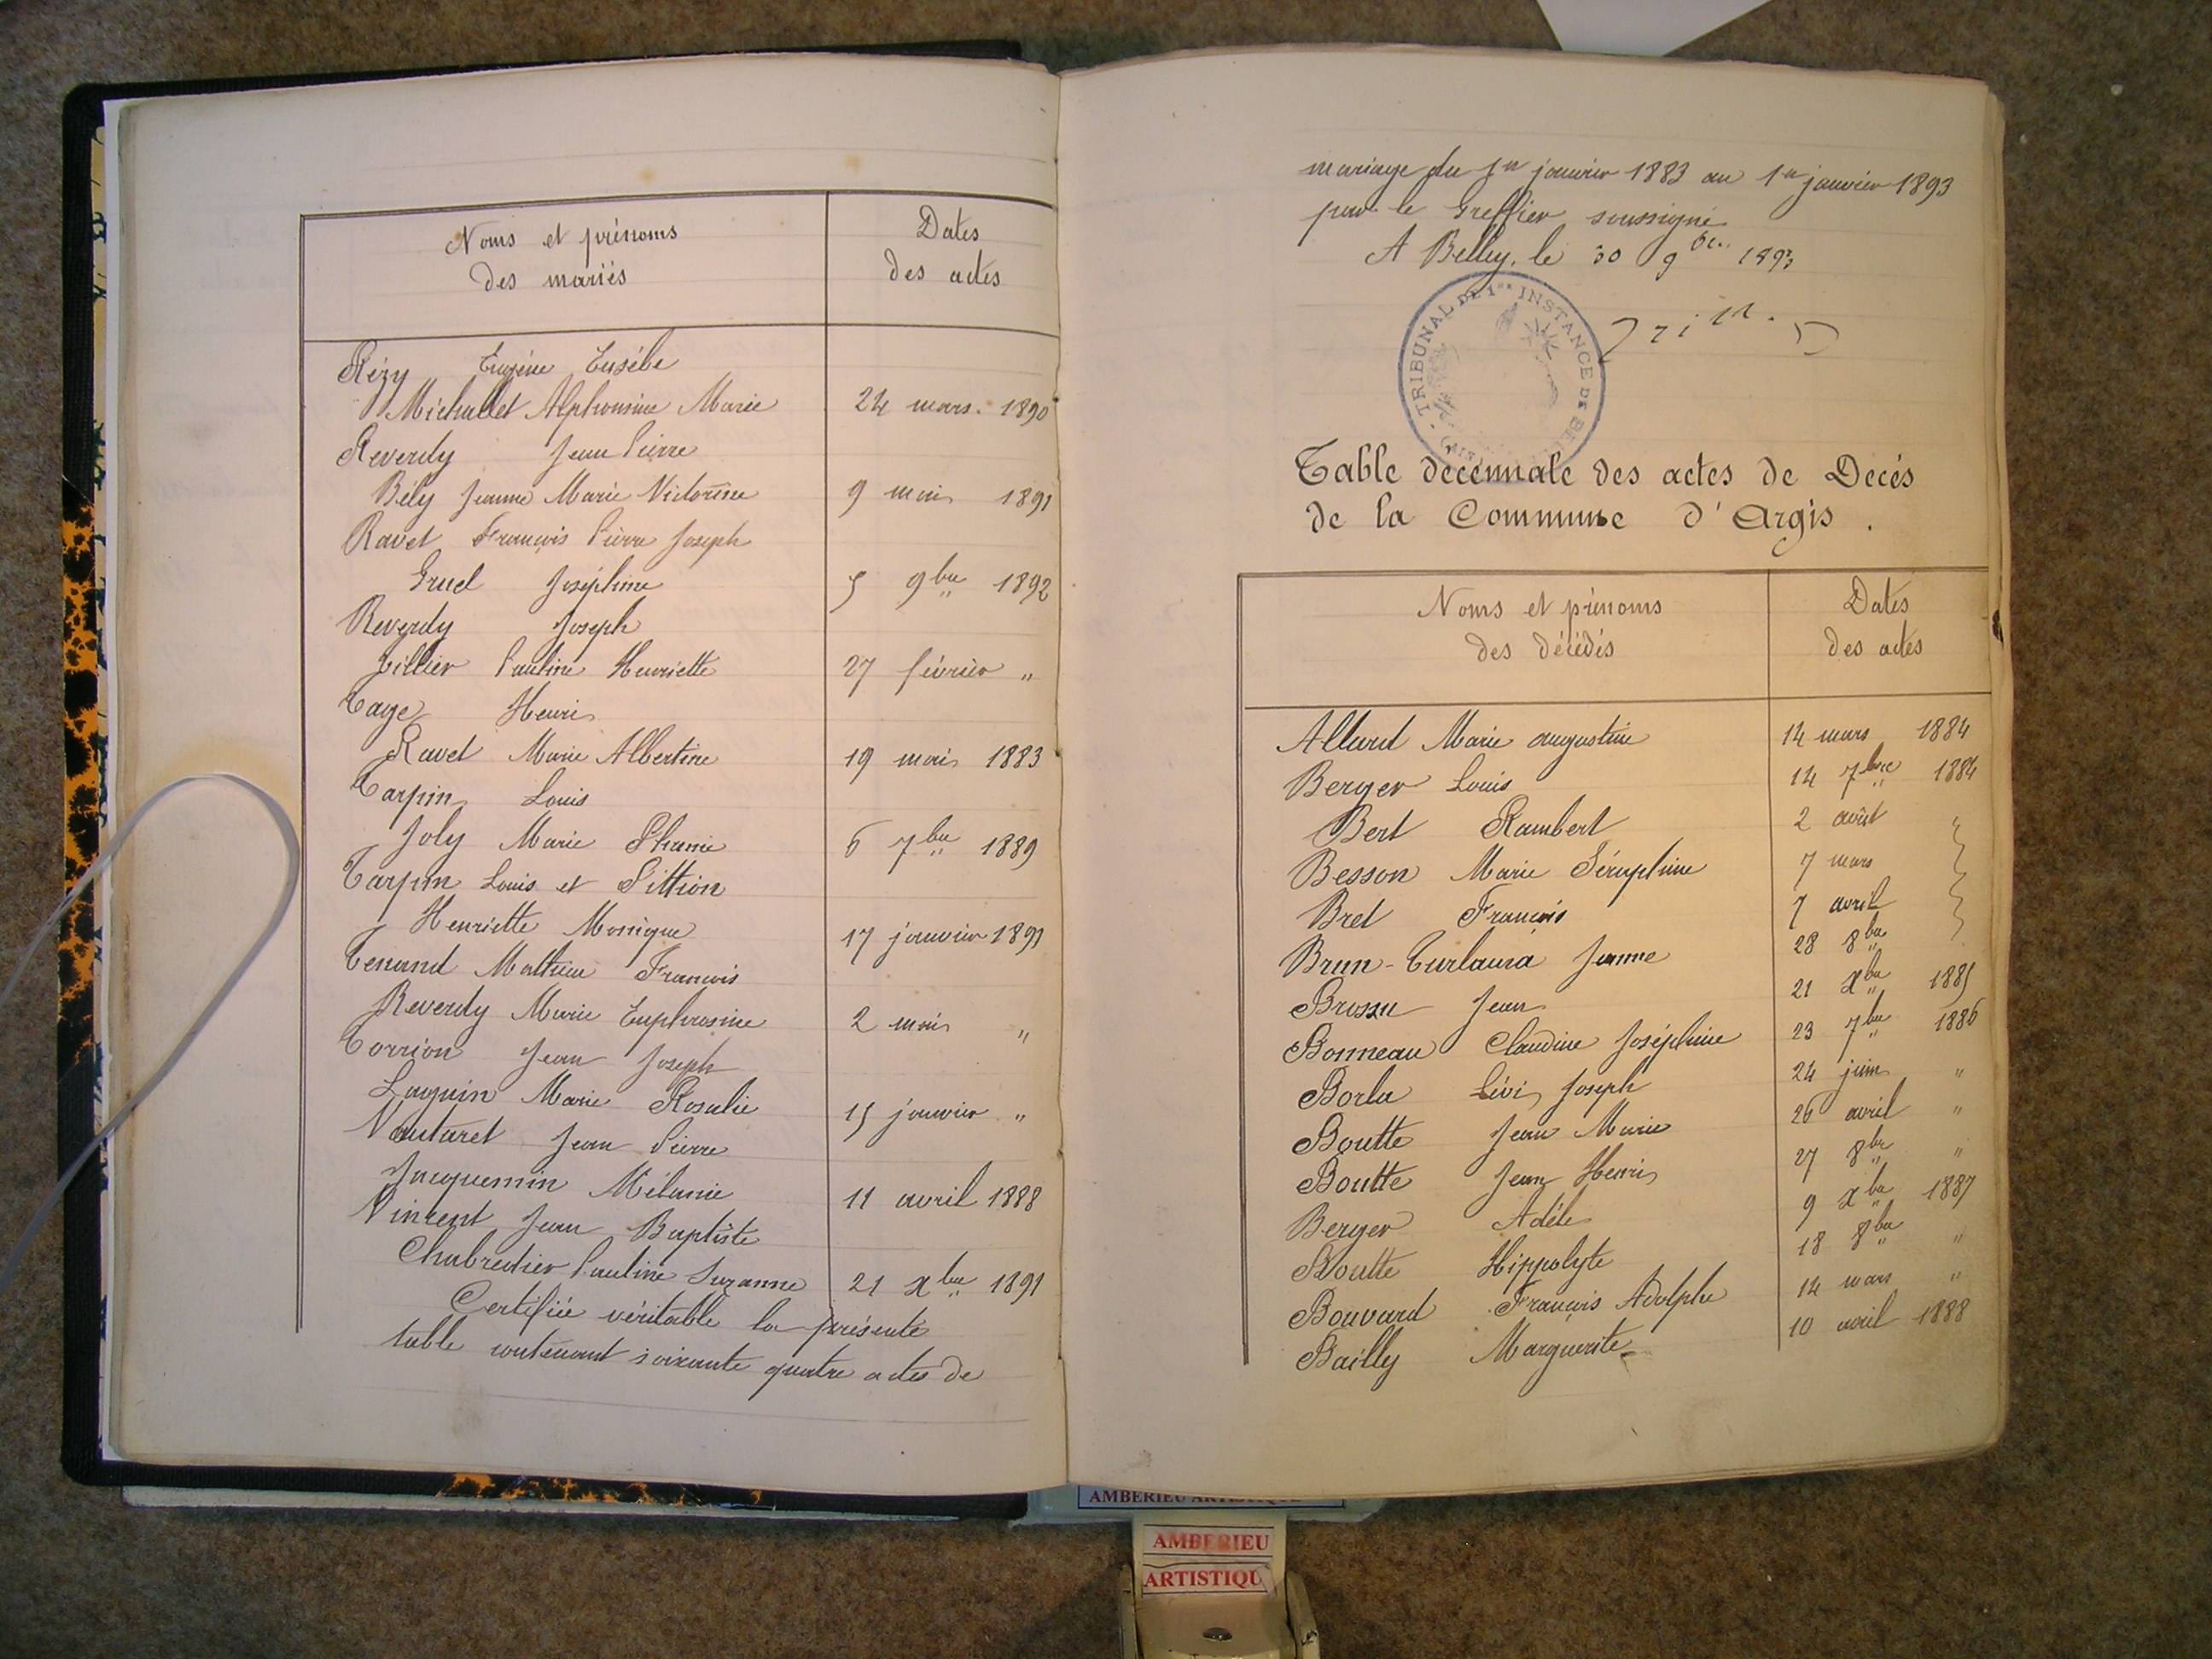 Noms et prénoms
des mariés
Dates
des actes
Rézy Eugène Eusébe
Michallet Alphonsine Marie 24 mars. 1890
Reverdy Jean Pierre
Bély Jeanne Marie Victorine 9 mai 1891
Ravet François Pierre Joseph
Gruel Joséphine 5 9bre 1892
Reverdy Joseph
Pauline Henriette 27 février "
Taye Henri
Ravet Marie Albertine 19 mai 1883
Tarpin Louis
Joly Marie 6 7bre 1889
Tarpin Louis et Pittion
Henriette Monique 17 janvier 1891
Tenand Mathieu François
Reverdy Marie Euphrosine 2 mai "
Torrion Jean Joseph
Laguin Marie Rosalie 15 janvier "
Vautaret Jean Pierre
Jacquemin Mélanie 11 avril 1888
Vincent Jean Baptiste
Chabredier Pauline Suzanne 21 Xbre 1891
Certifiée véritable la présente
table contenant soixante quatre actes de
mariage du 1er janvier 1883 au 1er janvier 1893
par le Greffier soussigné
A Belley, le 30 9bre 1893
TRIBUNAL DE 1re INSTANCE DE
Table décennale des actes de Décès
de la Commune d'Argis.
Noms et prénoms
des décédés
Dates
des actes
Allard Marie augustine 14 mars 1884
Berger Louis 14 7bre 1884
Bert Rambert 2 août "
Besson Marie Séraphine 7 mars
Bret François 7 avril
Brun-Turlaura Jeanne 28 8bre
Jean 21 Xbre 1885
Bonneau Claudine Joséphine 23 7bre 1886
Borla Lévi Joseph 24 juin "
Boutte Jean Marie 26 avril "
Boutte Jean Henri 27 8bre "
Berger Adèle 9 Xbre 1887
Boutte Hippolyte 18 8bre "
Bouvard François Adolphe 14 mars "
Bailly Marguerite 10 avril 1888
AMBERIEU
AMBERIEU
ARTISTIQU